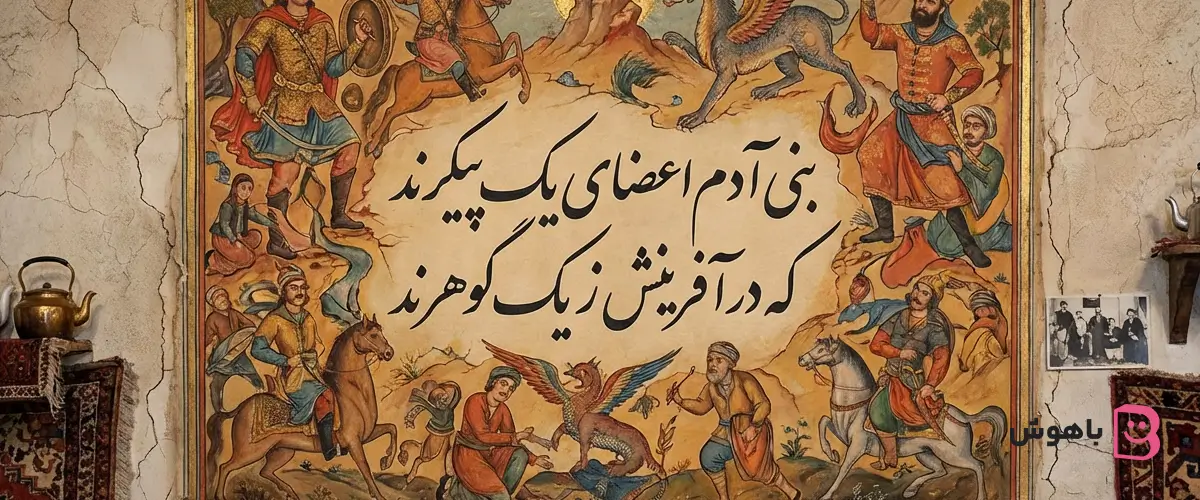 بنی آدم اعضای یک پیکرند
که در آفرینش ز یک گوهرند
باهوش